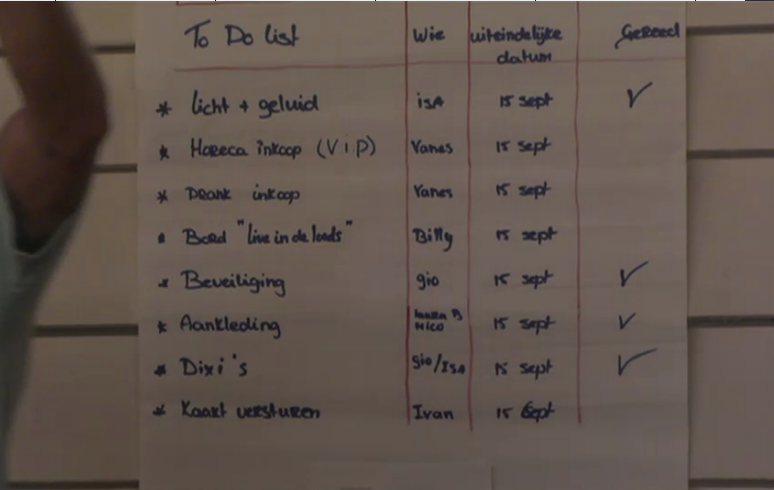 To Do list Wie uiteindelijke datum Gereed
* licht + geluid isA 15 sept √
* Horeca inkoop (Vip) Vanes 15 sept
* Drank inkoop Vanes 15 sept
* Bord "live in de loods" Billy 15 sept
* Beveiliging gio 15 sept √
* Aankleding Nico 15 sept √
* Dixi's gio/Isa 15 sept √
* Kaart versturen Ivan 15 Sept